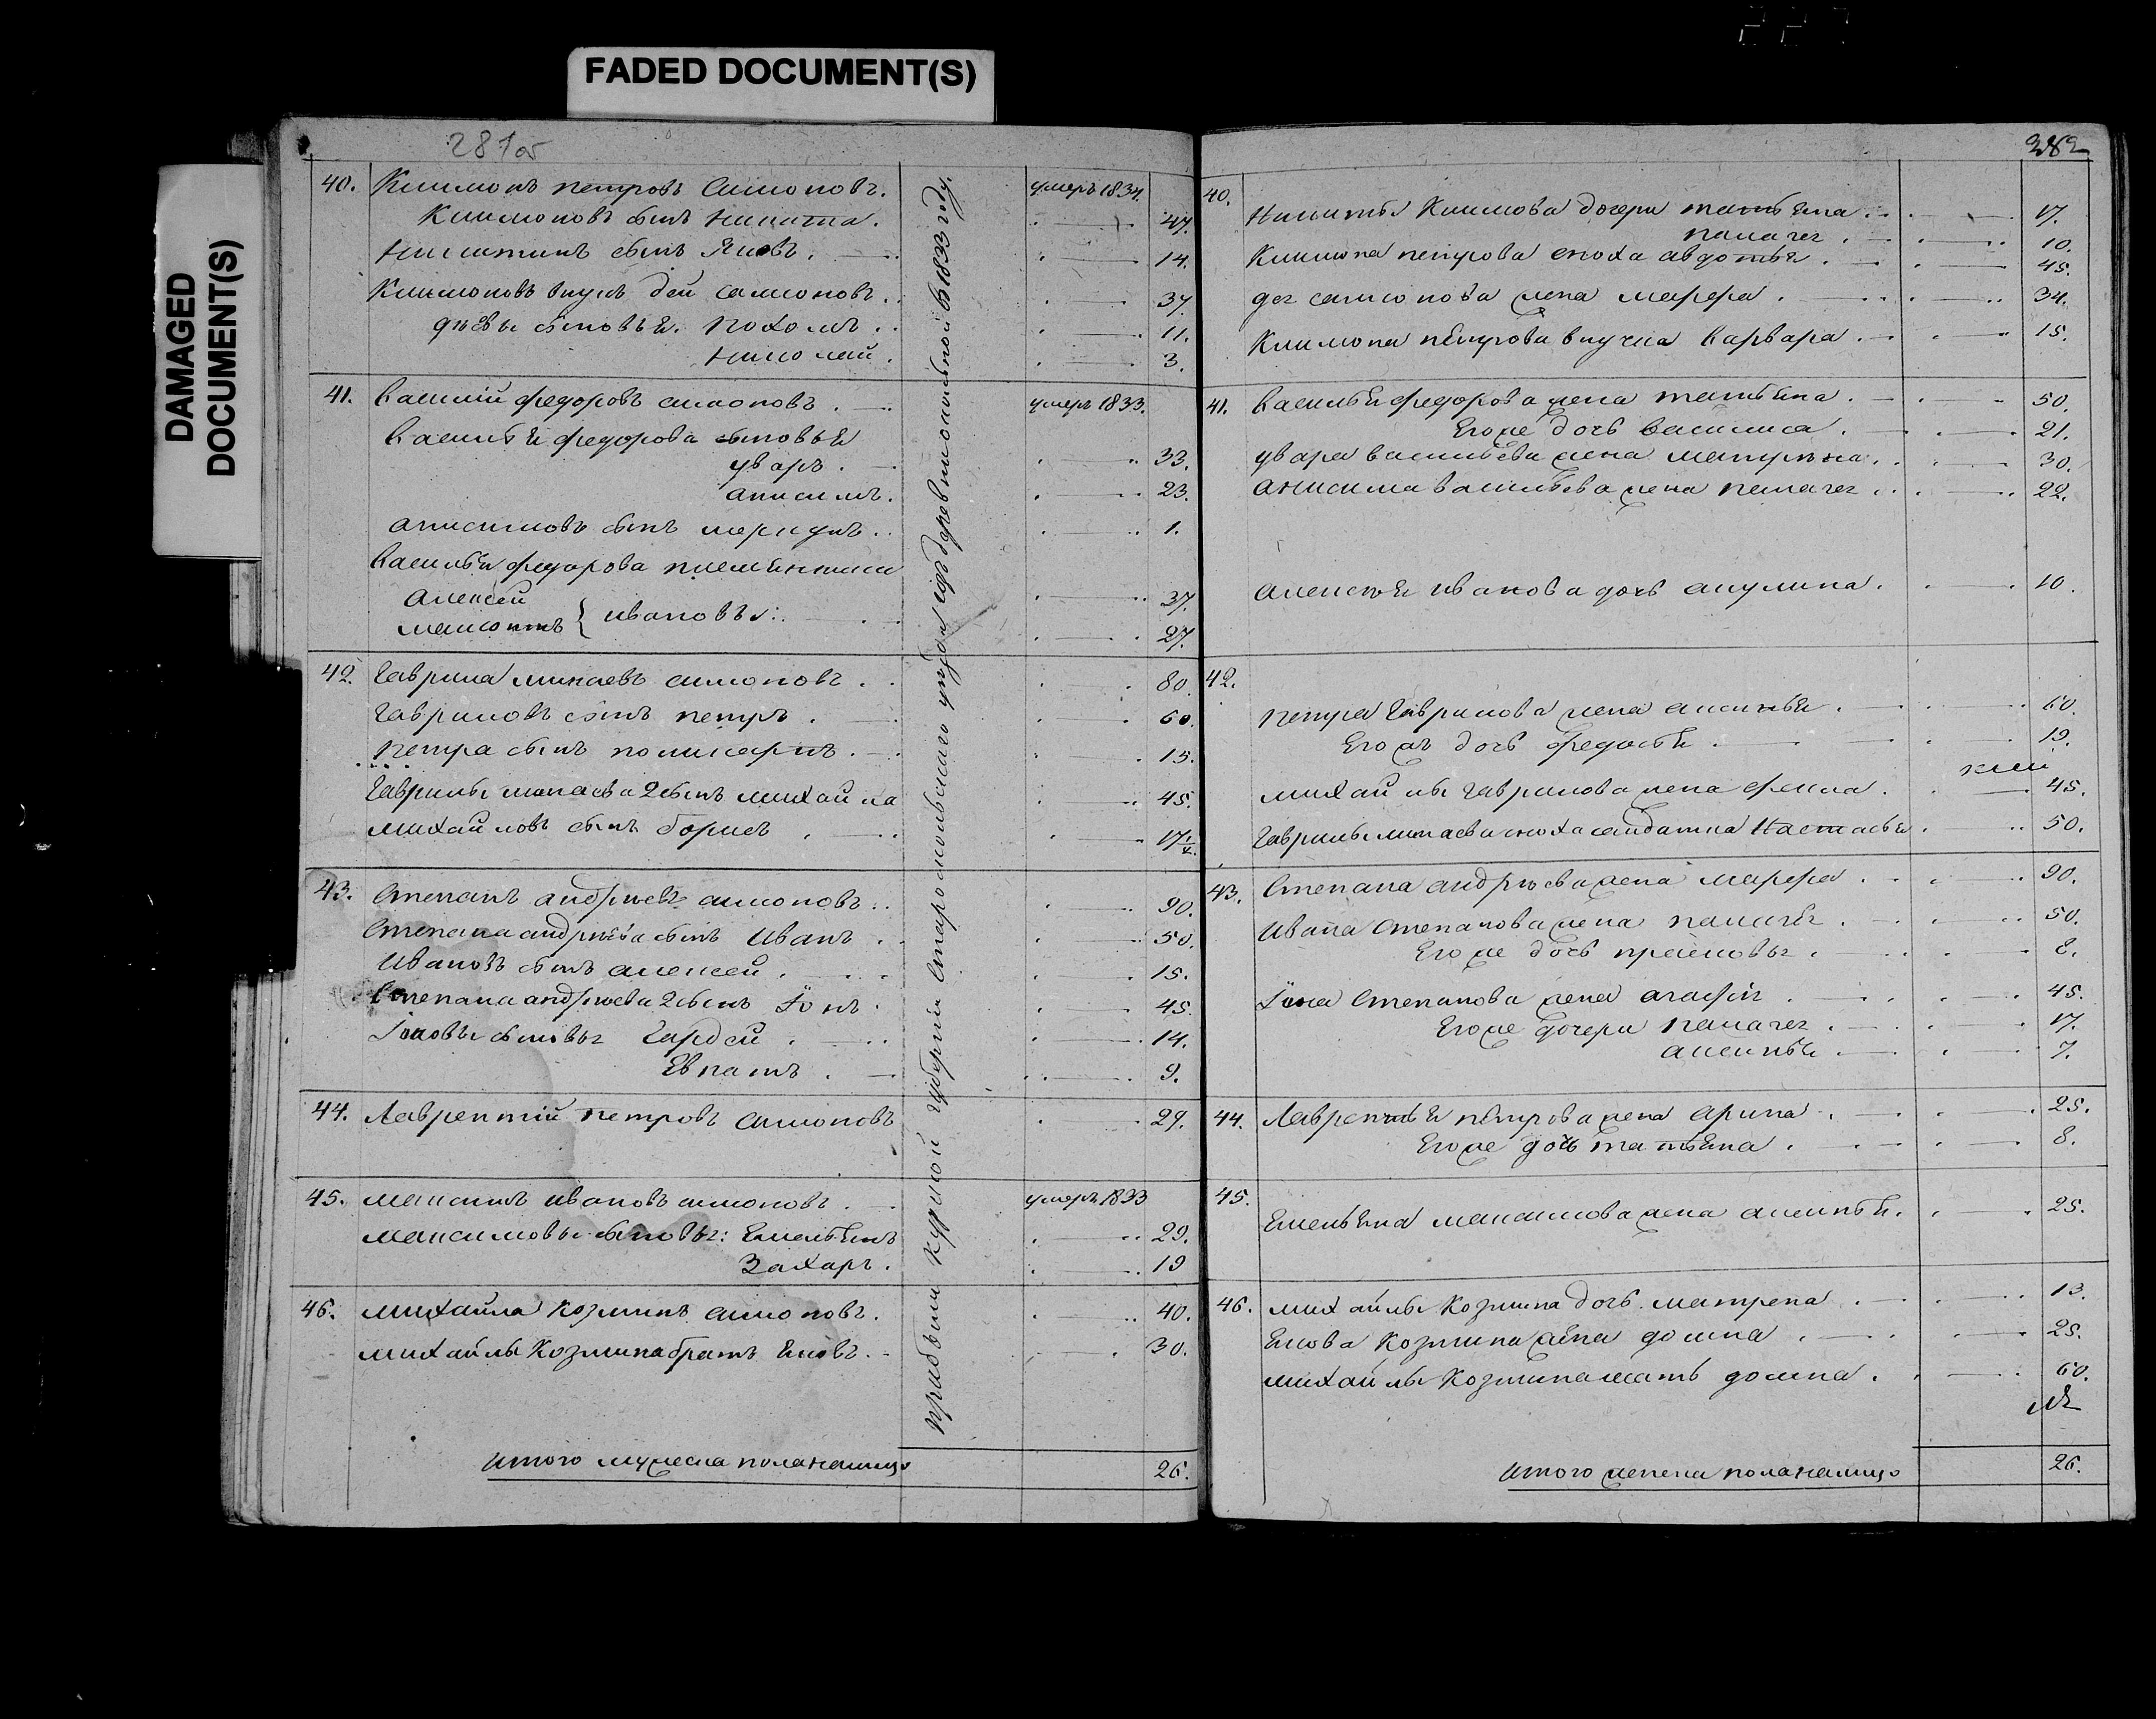 FADED DOCUMENT(S)
DAMAGED
DOCUMENT(S)
281об
40. Климонъ петровъ Симоновъ. умеръ 1834.
Климоновъ сынъ никита. 47.
Никитинъ сынъ Яковъ. 14.
Климоновъ внукъ дей самсоновъ. 37.
дѣевы сыновья. пахомъ. 11.
николай. 3.
41. Василій федоровъ симоновъ. умеръ 1833.
Василья федорова сыновья
уваръ. 33.
анисимъ. 23.
анисимовъ сынъ меркулъ. 1.
Василья федорова племянники
алексей 37.
ивановы:
27.
42. Гаврила минаевъ симоновъ. 80.
Гавриловъ сынъ петръ. 60.
петра сынъ поликарпъ. 15.
Гаврилы минаева 2 сынъ михайла 45.
михайловъ сынъ борисъ. 17
43. Степанъ андрѣевъ симоновъ. 90.
Степана андрѣева сынъ иванъ. 50.
ивановъ сынъ алексей. 15.
Степана андрѣева 2 сынъ 45.
сыновья Гордей. 14.
9.
44. Лаврентій петровъ симоновъ 29.
45. максимъ ивановъ симоновъ. умеръ 1833
максимовы сыновья: Емельянъ 29.
Захаръ. 19
46. михайла козминъ симоновъ. 40.
михайлы козмина братъ 30.
итого мужеска пола налицо 26.
прибыли курской губерніи Старооскольскаго уѣзда изъ деревни въ 1833 году.
282
40. Никиты Климова дочери татьяна. 17.
пелагея. 10.
Климона петрова сноха авдотья. 45.
дея самсонова жена марфа. 34.
Климона петрова внучка варвара. 15.
41. василья федорова жена татьяна. 50.
Его же дочь василиса. 21.
увара васильева жена матрена. 30.
анисима васильева жена пелагея. 22.
алексѣя иванова дочь акулина. 10.
42.
петра Гаврилова жена аксинья. 60.
Его жъ дочь федосья. 19.
михайлы гаврилова жена фекла. 45.
Гаврилы минаева сноха салдатка Настасья. 50.
43. Степана андрѣева жена марфа. 90.
ивана Степанова жена пелагея. 50.
Его же дочь прасковья. 8.
Степанова жена агафья. 45.
Его же дочери пелагея. 17.
аксинья. 7.
44. Лаврентья петрова жена арина. 25.
Его же дочь татьяна. 8.
45.
Емельяна максимова жена аксинья. 25.
46. михайлы козмина дочь матрена. 13.
козмина жена домна. 25.
михайлы козмина мать домна. 60.
итого женска пола налицо 26.